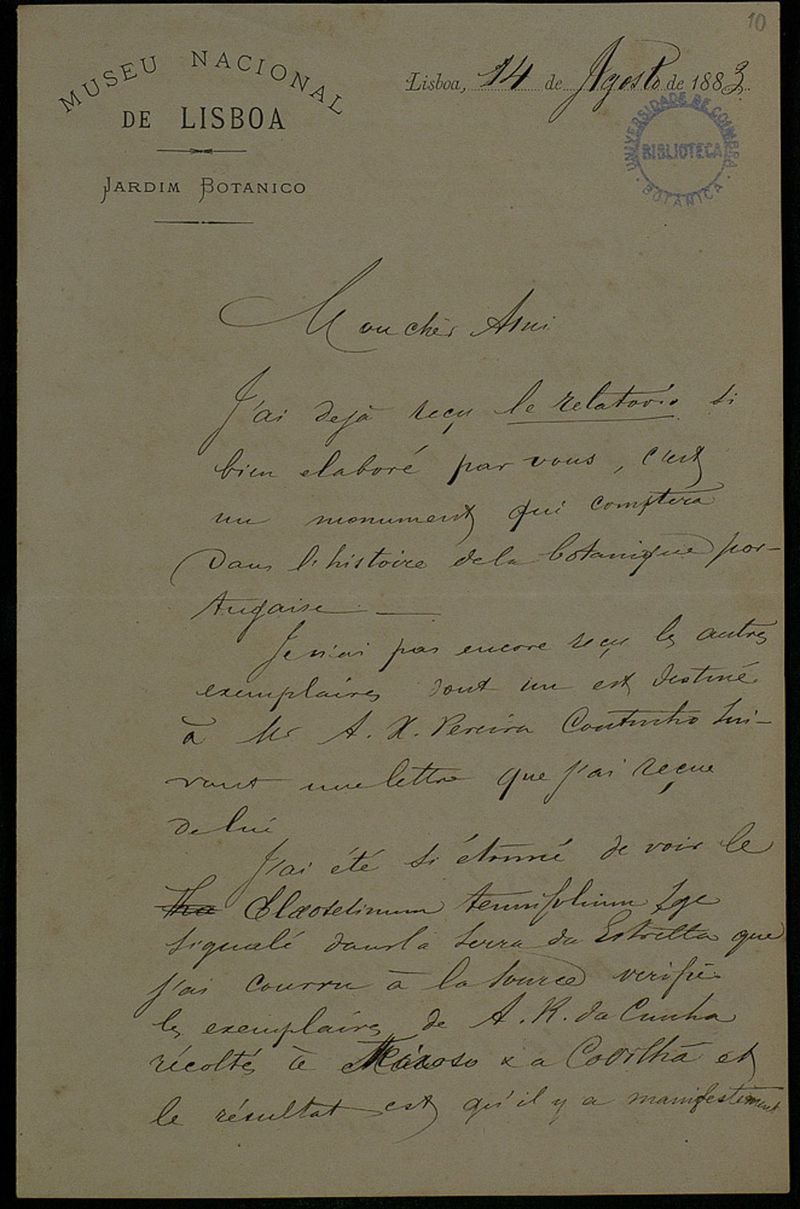 10
MUSEU NACIONAL
DE LISBOA
JARDIM BOTANICO
Lisboa, 14 de Agosto de 1883.
UNIVERSIDADE DE COIMBRA
BIBLIOTECA
BOTÂNICA
Mon cher Ami
J'ai dejà reçu le relatorio si
bien elaboré par vous, c'est
un monument qui comptera
dans l'histoire de la botanique por-
tugaise. —
Je n'ai pas encore reçu les autres
exemplaires dont un est destiné
à Mr A. X. Pereira Coutinho sui-
vant une lettre que j'ai reçue
de lui
J'ai été si étonné de voir le
Tha Elæoselinum tenuifolium Lge
signalé dans la Serra da Estrella que
j'ai courru à la source verifié
les exemplaires de A. R. da Cunha
récoltés à x a Covilhã et
le résultat est qu'il y a manifestement